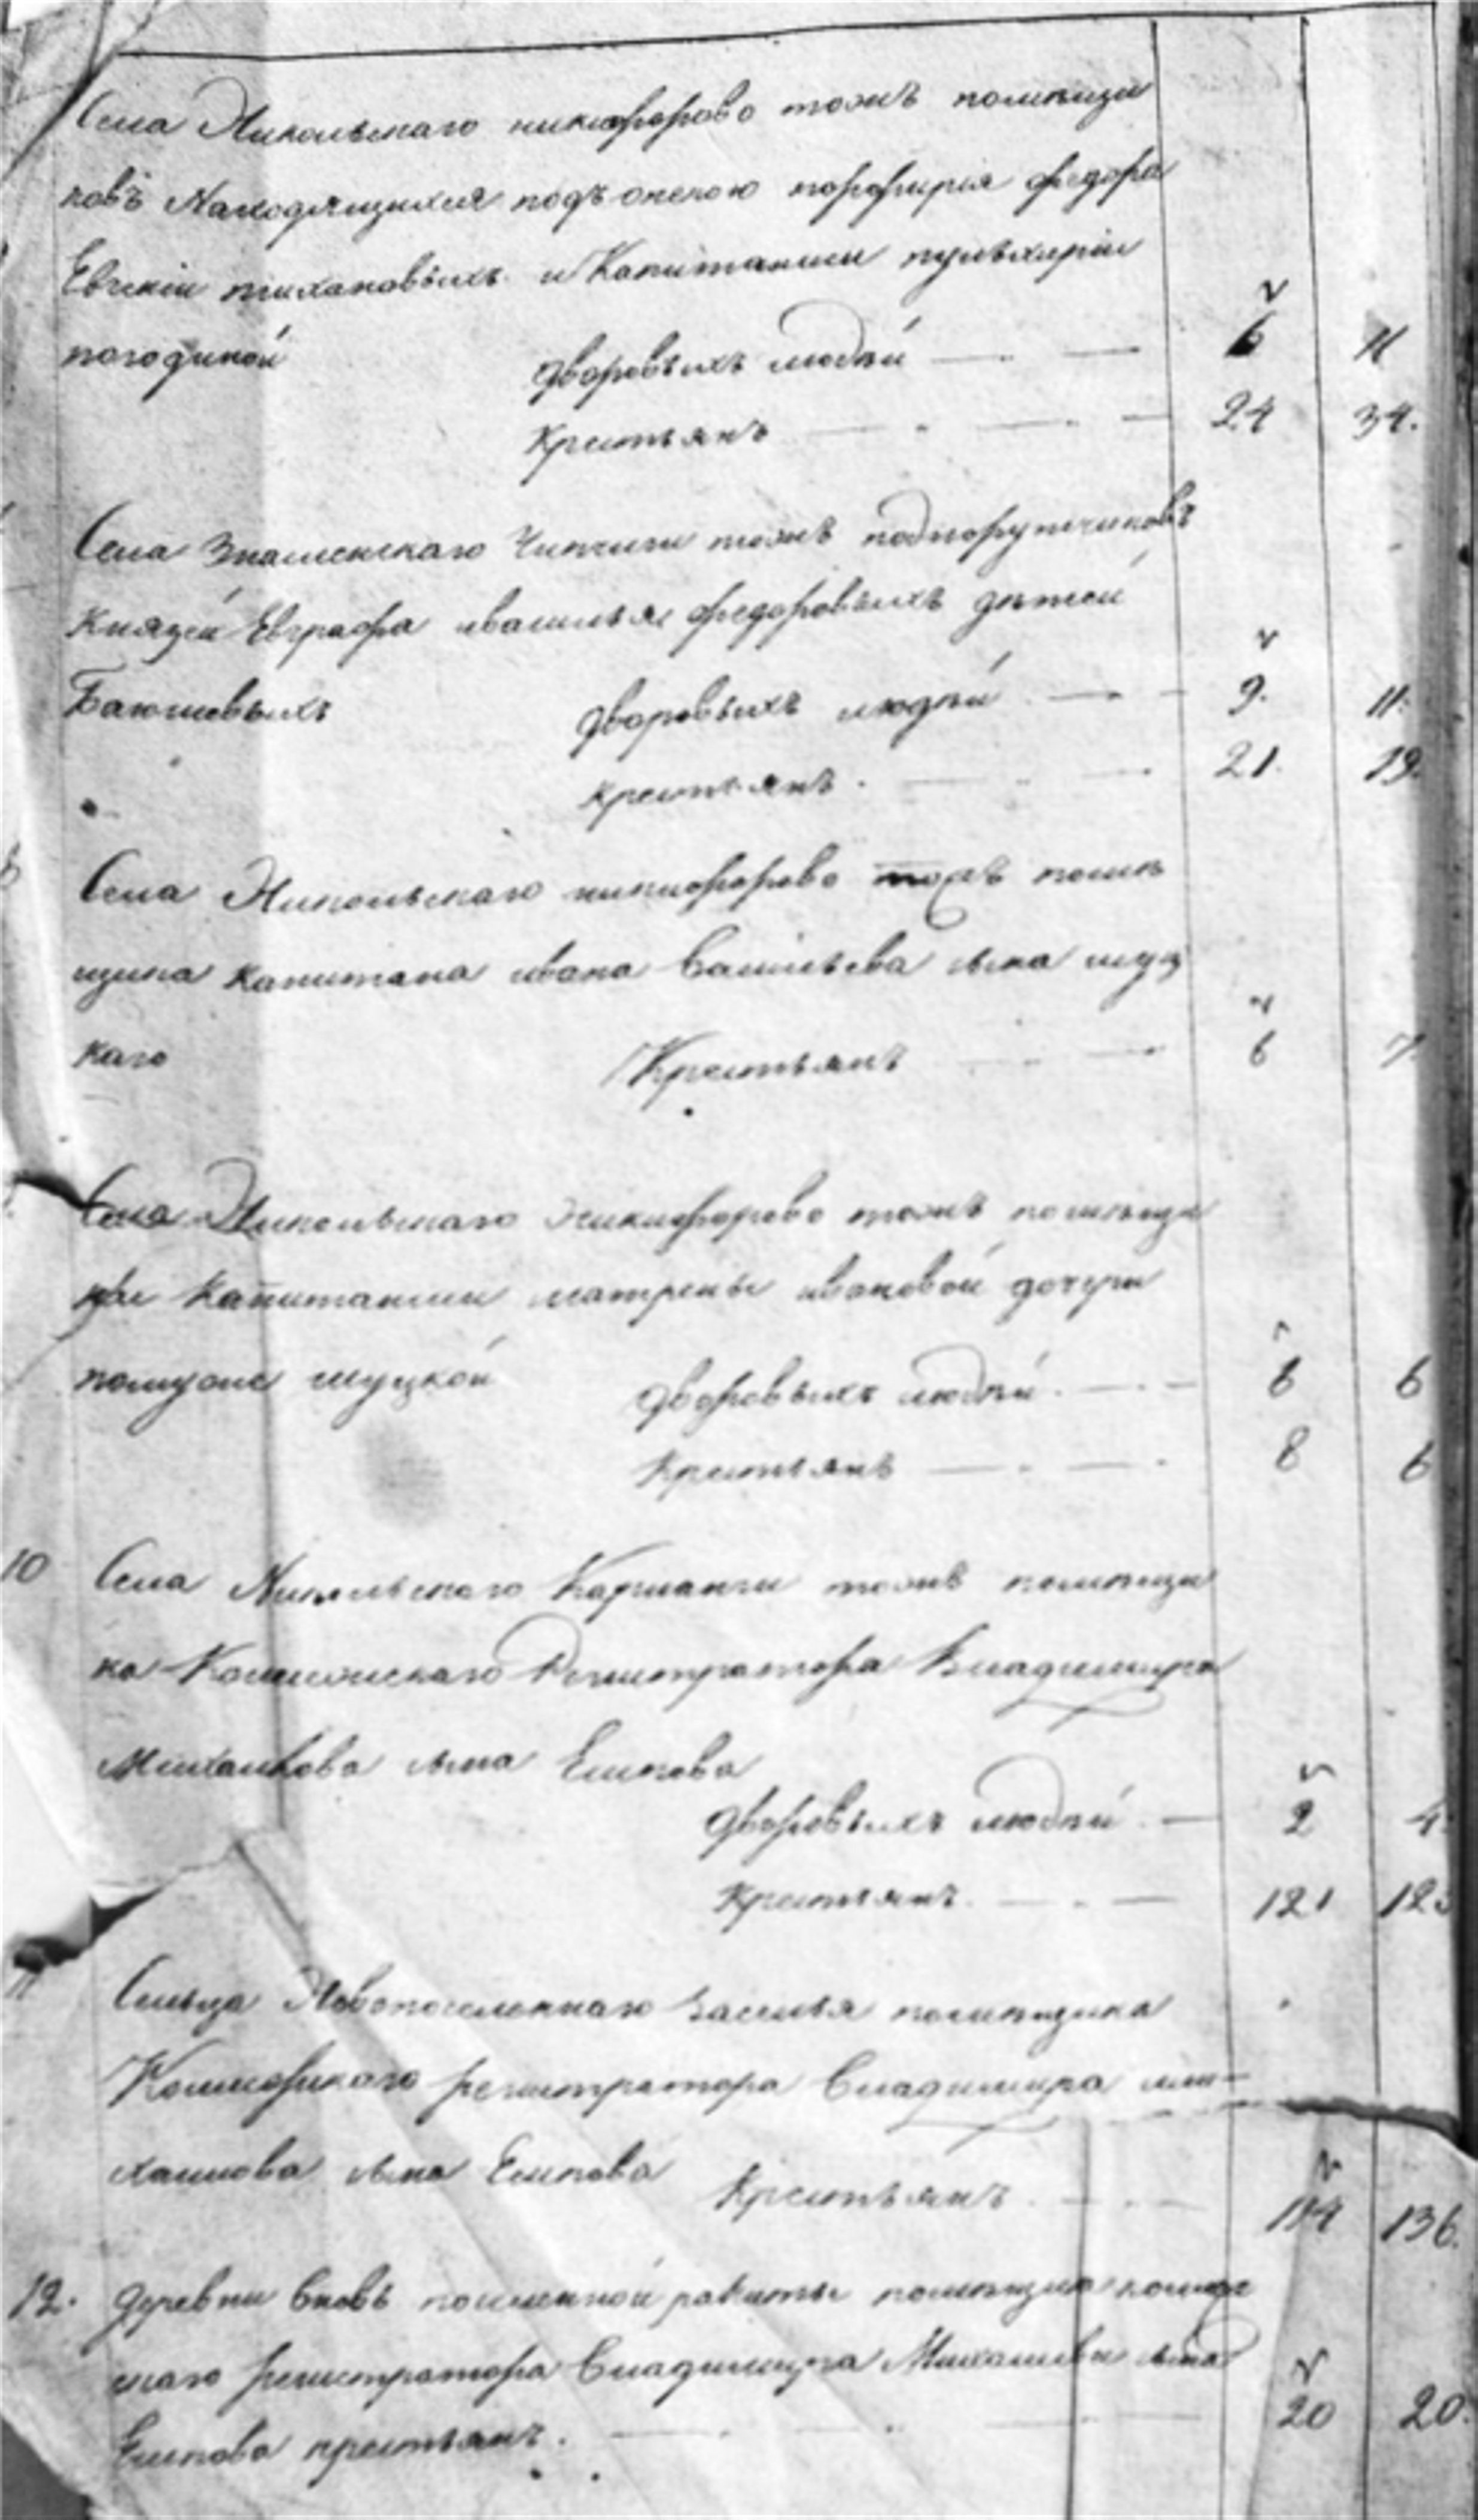 Села Никольскаго никифорово тожъ помѣщи
ковъ Находящихся подъ опекою порфирия федора
Евгении тихановыхъ и Капитанши пульхерии
погодиной дворовыхъ людѣй — — 6 11
Крестьянъ — — 24 34.
Села Знаменскаго тожъ подпорутчиковъ
Князей Евграфа ивасилья федоровыхъ детей
Баюшевыхъ дворовыхъ людѣй — 9. 11.
крестьянъ. — 21. 19.
Села Никольскаго никифорово тожъ помѣ
щика капитана ивана Васильева сына шуц
каго Крестьянъ — 6 7
Села Никольскаго Никифорово тожъ помѣщи
цы Капитанши матрены ивановой дочери
шуцкой дворовыхъ людѣй. — 6 6
Крестьянъ — — 8 6
10 Села Никольскаго Каршанги тожъ помѣщи
ка Колежскаго Регистратора Владимира
Михайлова сына Есипова
дворовыхъ людѣй — 2 4
Крестьянъ. — — 121
11 Сельца Новопоселеннаго помѣщика
Колежскаго регистратора Владимира ми-
хаилова сына Есипова Крестьянъ — 114 136.
12. деревни вновь поселенной ракиты помѣщика колеж
скаго регистратора Владимира Михаилова сына
Есипова крестьянъ. — 20 20.